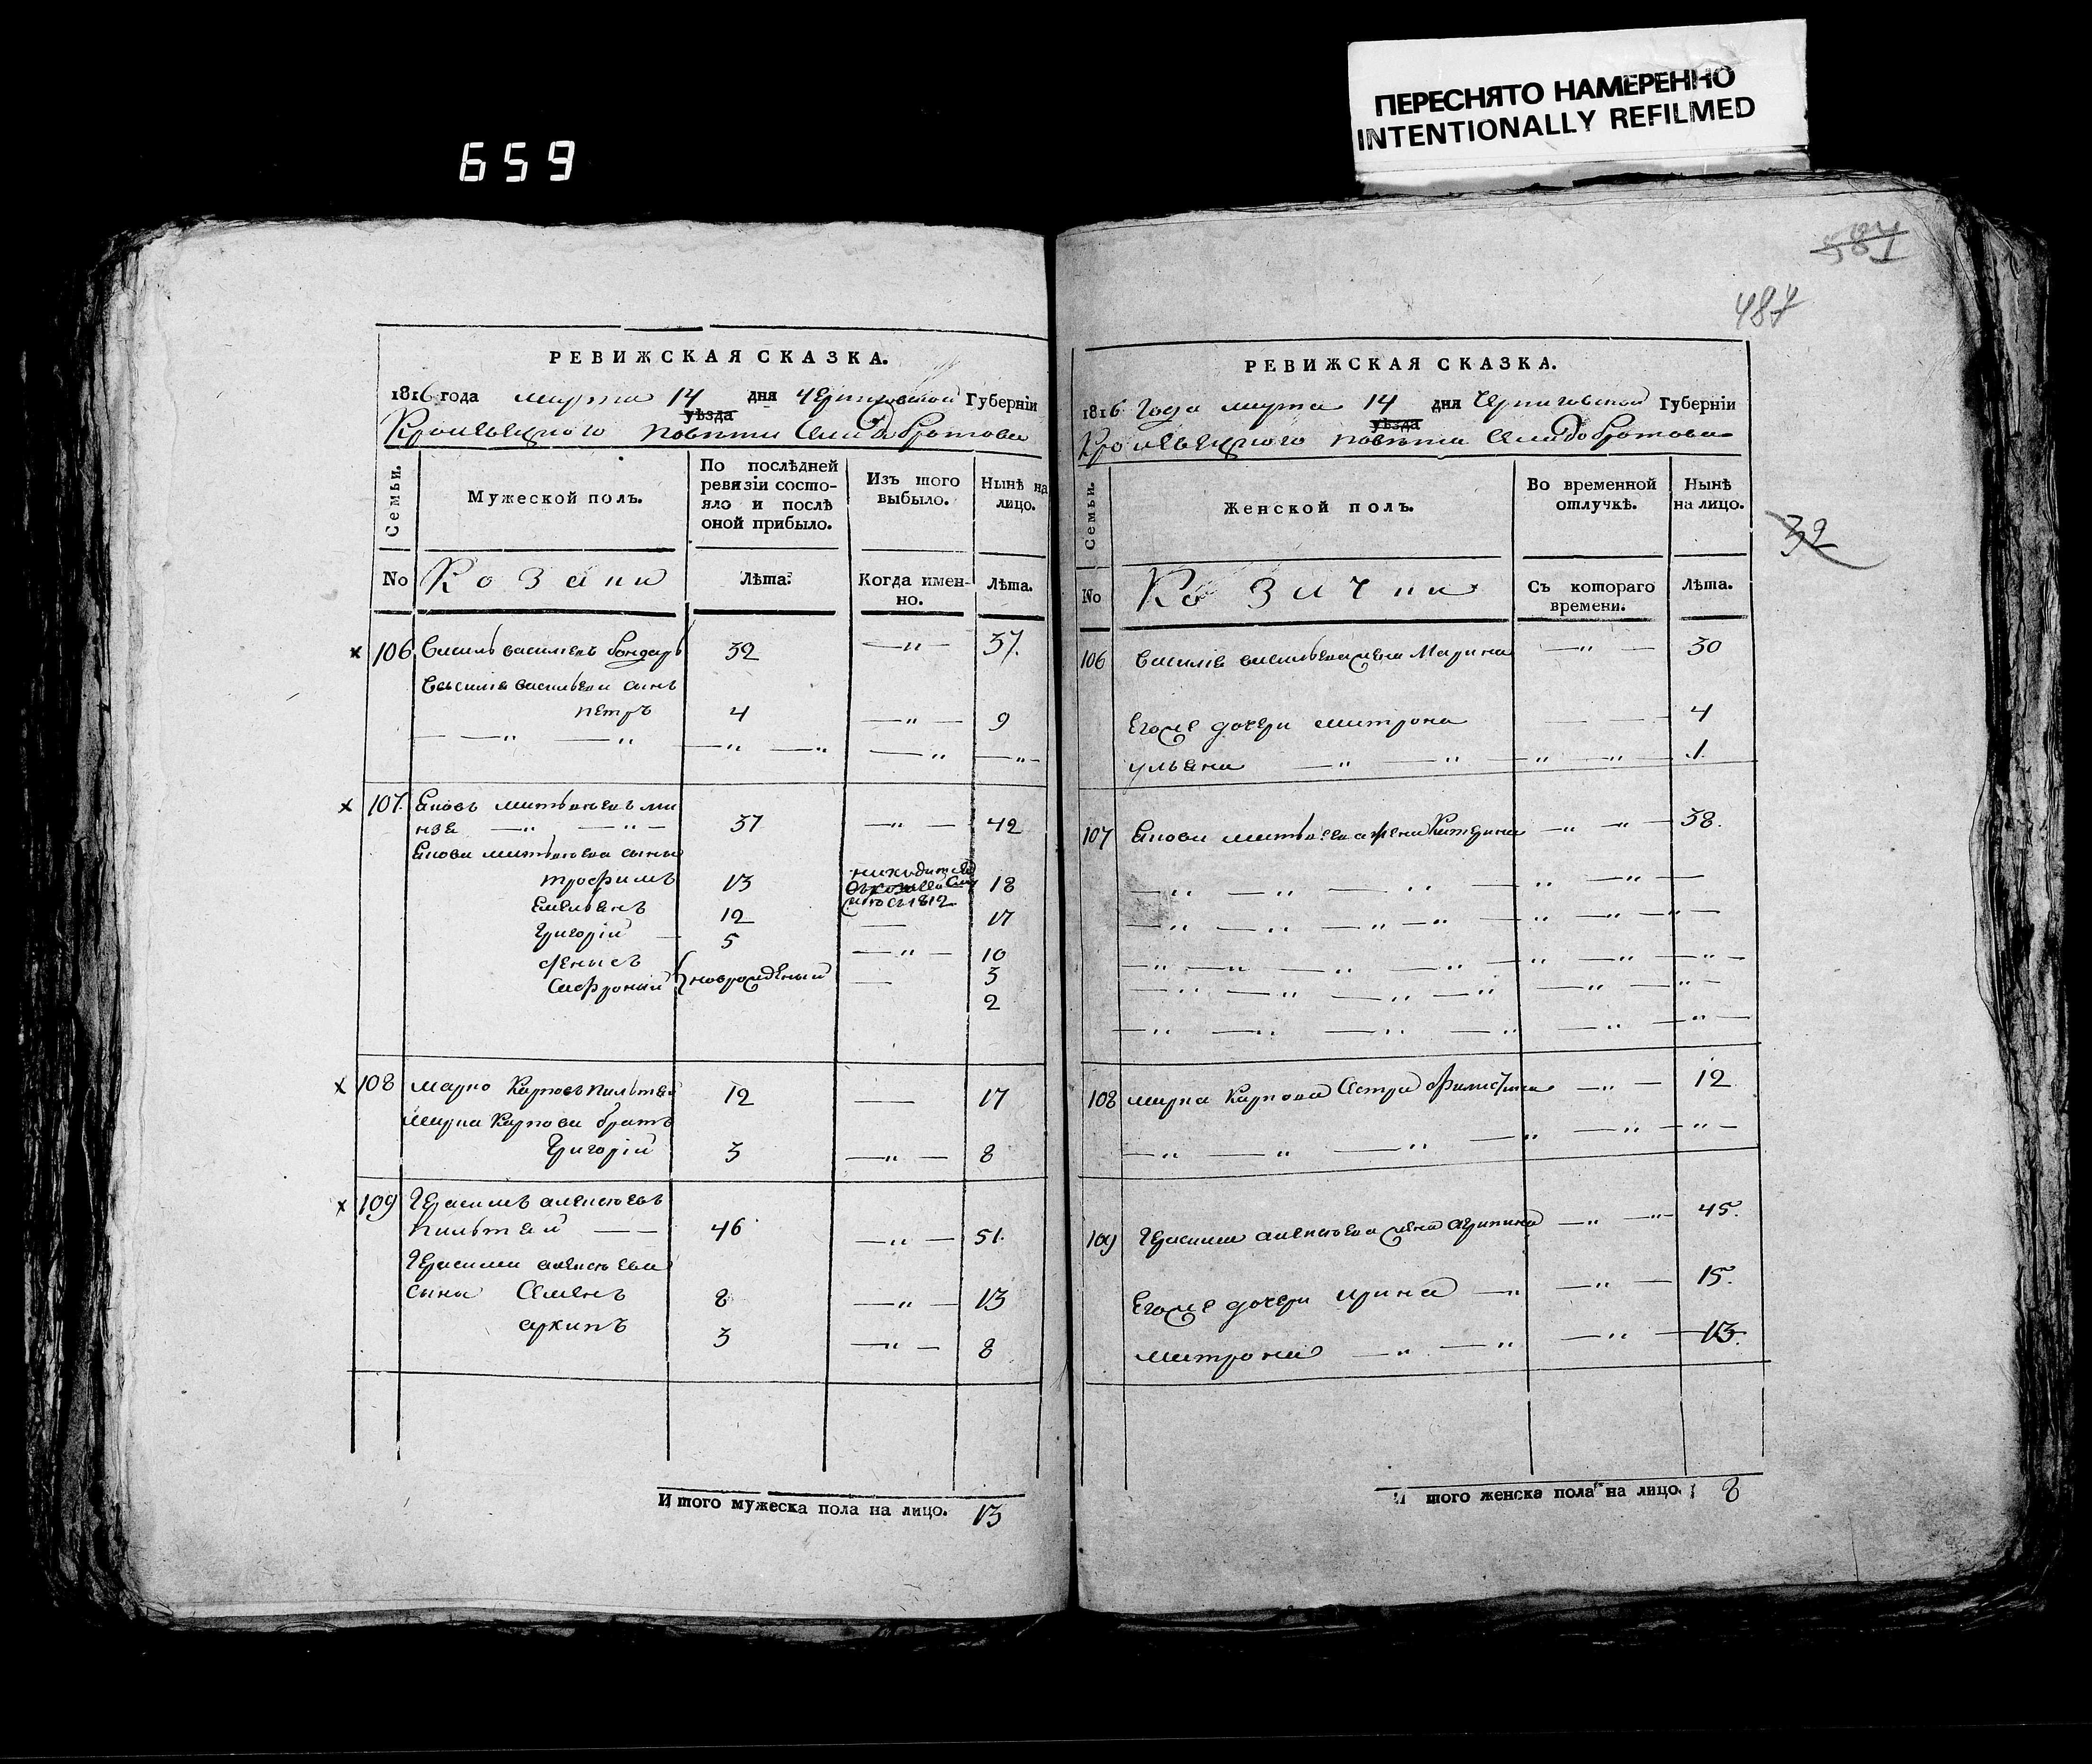 659
ПЕРЕСНЯТО НАМЕРЕННО
INTENTIONALLY REFILMED
587
487
32
РЕВИЖСКАЯ СКАЗКА.
1816 года марта 14 дня Черниговской Губерніи
уѣзда
Кролевецкого повѣта села Добротова
Семьи.
Мужеской полъ.
По послѣдней ревизіи состояло и послѣ оной прибыло.
Изъ того выбыло.
Нынѣ на лицо.
No
Козаки
Лѣта.
Когда именно.
Лѣта.
106 Василь васильевъ бондарь 32 37.
Василія васильева сынъ
петръ 4 9
107. Яковъ матвѣевъ
37 42
Якова матвѣева сыны
трофимъ 13 18
съ 1812
Емельянъ 12 17
Григорій 5 10
денисъ 3
Сафроній новрожденыи 2
108 марко Карповъ пильтяй 12 17
марка Карпова братъ
Григорій 3 8
109 Герасимъ алексѣевъ
пильтяй 46 51.
Герасима алексѣева
сыны Семенъ 8 13
архипъ 3 8
Итого мужеска пола на лицо. 13
РЕВИЖСКАЯ СКАЗКА.
1816 года марта 14 дня Черниговской Губерніи
уѣзда
Кролевецкого повѣта села Добротова
Семьи.
Женской полъ.
Во временной отлучкѣ.
Нынѣ на лицо.
No
Козачки
Съ котораго времени.
Лѣта.
106 Василія васильева жена Марина 30
Егоже дочери матрона 4
ульяна 1.
107 Якова матвѣева жена Катерина 38.
108 марка Карпова Сестра 12
109 Герасима алексѣева жена агрипина 45.
Егоже дочери ирина 15.
матрона 13.
Итого женска пола на лицо. 8